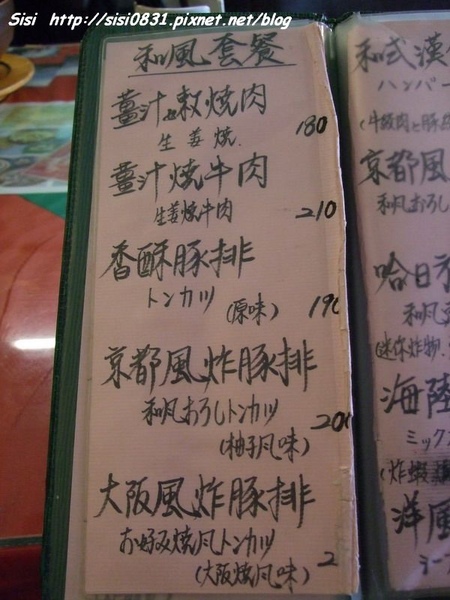 Sisi http://sisi0831.pixnet.net/blog
和風套餐
生姜燒. 180
薑汁燒牛肉
生姜燒牛肉 210
香酥豚排
トンカツ
(原味) 190
京都風炸豚排
和風おろしトンカツ 200
(柚子風味)
大阪風炸豚排
お好み燒風トンカツ 2
(大阪燒風味)
和式漢
ハンバー
京都風
和風おろし
哈日
和風
海陸
ミック
(炸蝦
洋風
シー